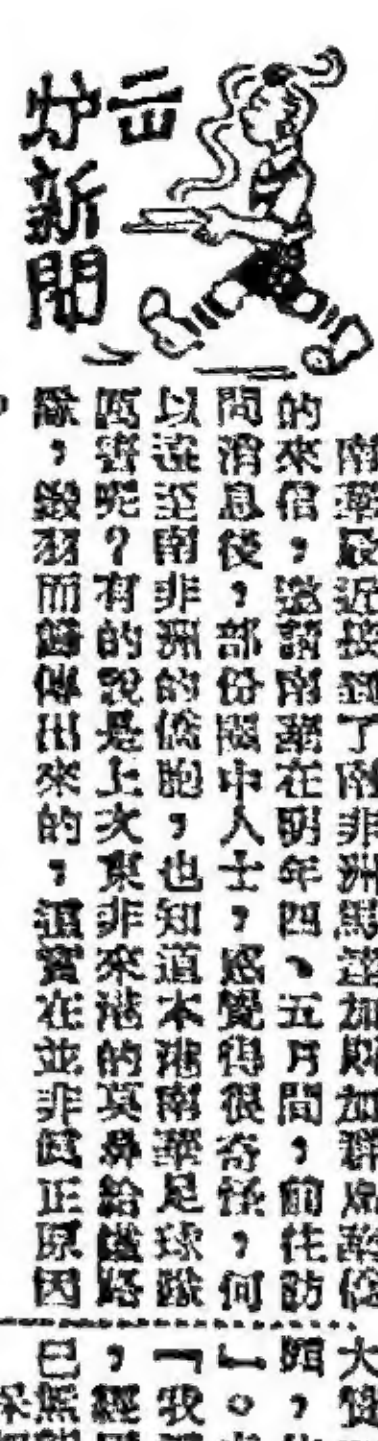 出炉新聞
南華最近接到了南非洲馬達加斯加群島華僑
的來信，邀請南華在明年四、五月間，前往訪
問消息後，部份圈中人士，感覺得很奇怪，何
以遠至南非洲的僑胞，也知道本港南華足球隊
厲害呢？有的說是上次東非來港的莫鼻給鐵路
隊，鎩羽而歸傳出來的，這實在並非真正原因
大
，
」。
「我
，經
已無